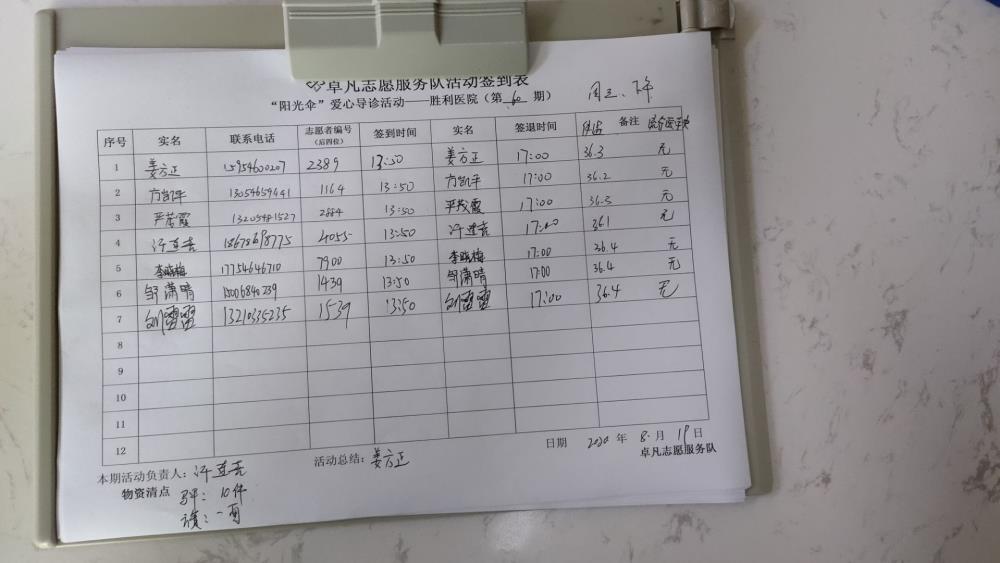 卓凡志愿服务队活动签到表
“阳光伞”爱心导诊活动——胜利医院（第 60 期） 周三、下午
序号 实名 联系电话 志愿者编号（后四位） 签到时间 实名 签退时间 体温 备注
1 姜方正 15954600207 2389 13:50 姜方正 17:00 36.3 无
2 方凯平 13054659441 1164 13:50 方凯平 17:00 36.2 无
3 严茂霞 13205481527 2884 13:50 严茂霞 17:00 36.3 无
4 18678698775 4055 13:50 17:00 36.1 无
5 李晓梅 17754646710 7900 13:50 李晓梅 17:00 36.4 无
6 邹潇晴 15006840239 1439 13:50 邹潇晴 17:00 36.4 无
7 刘雷雷 13210335235 1539 13:50 刘雷雷 17:00 36.4 无
8
9
10
11
12
日期 2020 年 8 月 19 日
本期活动负责人： 活动总结：姜方正 卓凡志愿服务队
物资清点 马甲：10件
一面